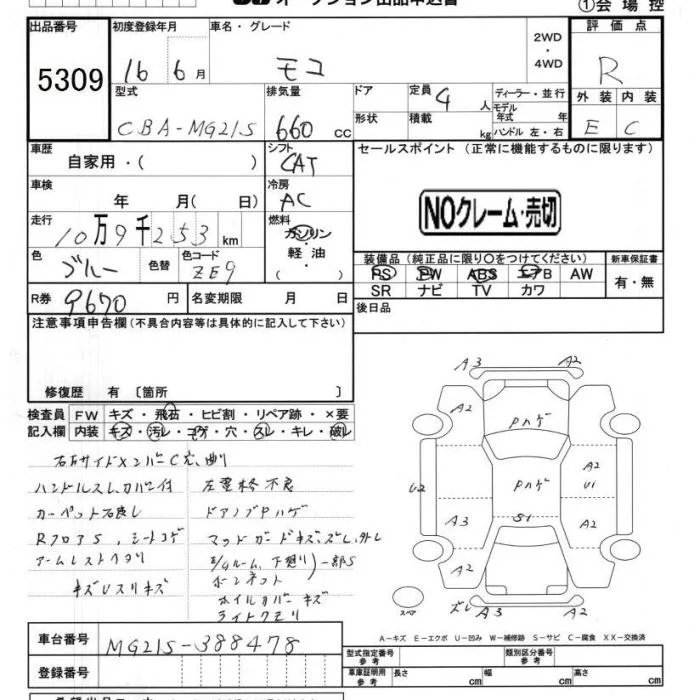 オークション出品申込書
①会場控
出品番号 初度登録年月 車名・グレード 2WD ・ 4WD 評価点
5309 16 6月 モコ R
型式 排気量 ドア 定員 4人 ディーラー・並行 外装 内装
CBA-MG21S 660cc 形状 積載 kg モデル年式 年 ハンドル 左・右 E C
車歴 自家用・( ) シフト CAT セールスポイント (正常に機能するものに限ります)
車検 年 月( 日) 冷房 AC
NOクレーム・売切
走行 10万9千253km 燃料 ガソリン 軽油 ( )
色 ブルー 色替 色コード ZE9
装備品(純正品に限り○をつけてください) 新車保証書
PS PW ABS エアB AW 有・無
SR ナビ TV カワ
R券 9670円 名変期限 月 日 後日品
注意事項申告欄(不具合内容等は具体的に記入して下さい)
修復歴 有 〔箇所 〕
検査員 FW キズ・飛石・ヒビ割・リペア跡・×要
記入欄 内装 キズ・汚レ・コゲ・穴・スレ・キレ・破レ
ハンドルスレ、カバー付
カーペット
RフロアS、シートコゲ
キズUスリキズ
ドアノブPハゲ
ボンネット
ホイルカバーキズ
ライトクモリ
A3 A2
A2 Pハゲ
Pハゲ A2 U1
U2 A3 S1 A2
A2
スペア ズレ A3 A2
A-キズ E-エクボ U-凹み W-補修跡 S-サビ C-腐食 XX-交換済
車台番号 MG21S-388478
型式指定番号 参考 類別区分番号 参考
登録番号
車庫証明用 参考 長さ cm 幅 cm 高さ cm